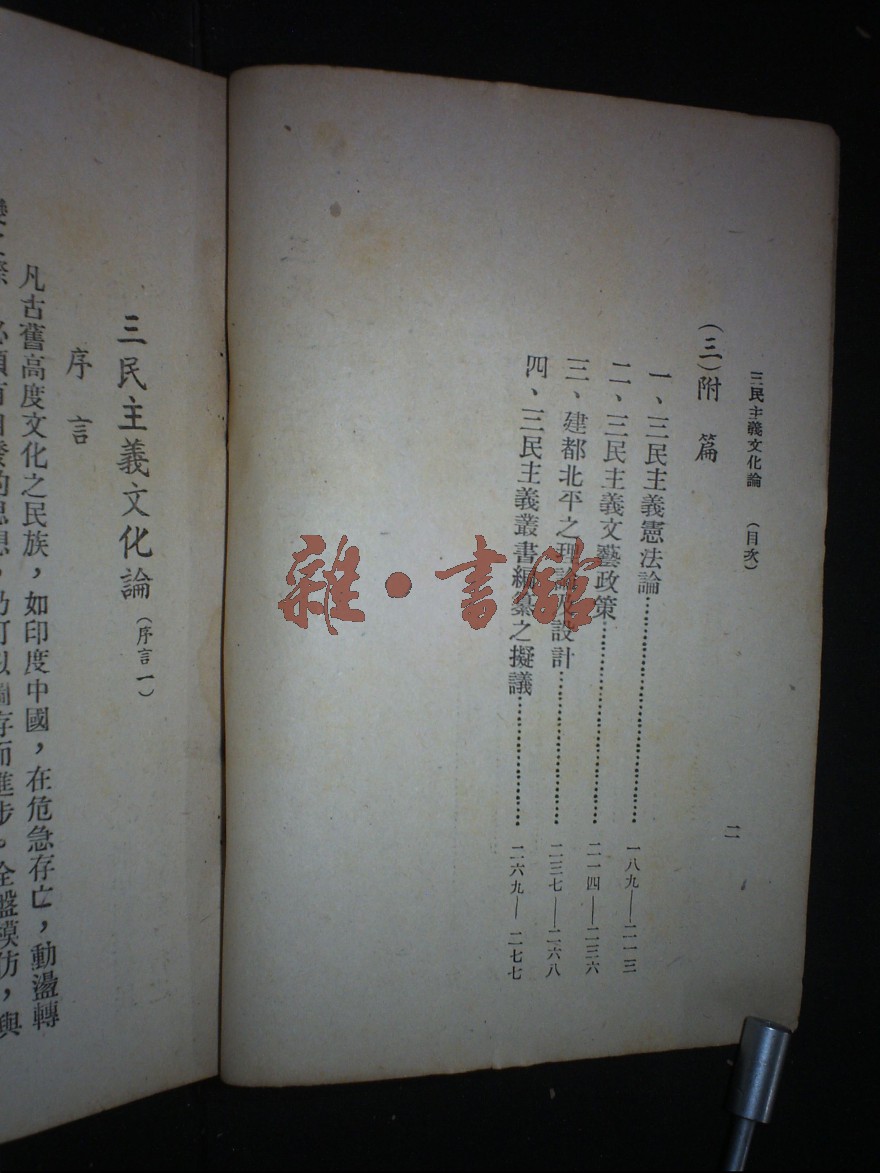 三民主義文化論 （目次） 二
（三）附 篇
一、三民主義憲法論……………………一八九——二一三
二、三民主義文藝政策……………………二一四——二三六
三、建都北平之理論及設計……………………二三七——二六八
四、三民主義叢書編纂之擬議……………………二六九——二七七
雜·書館
三民主義文化論（序言一）
序 言
凡古舊高度文化之民族，如印度中國，在危急存亡，動盪轉
必須有自發的思想，乃可以圖存而進步。全盤模仿，與